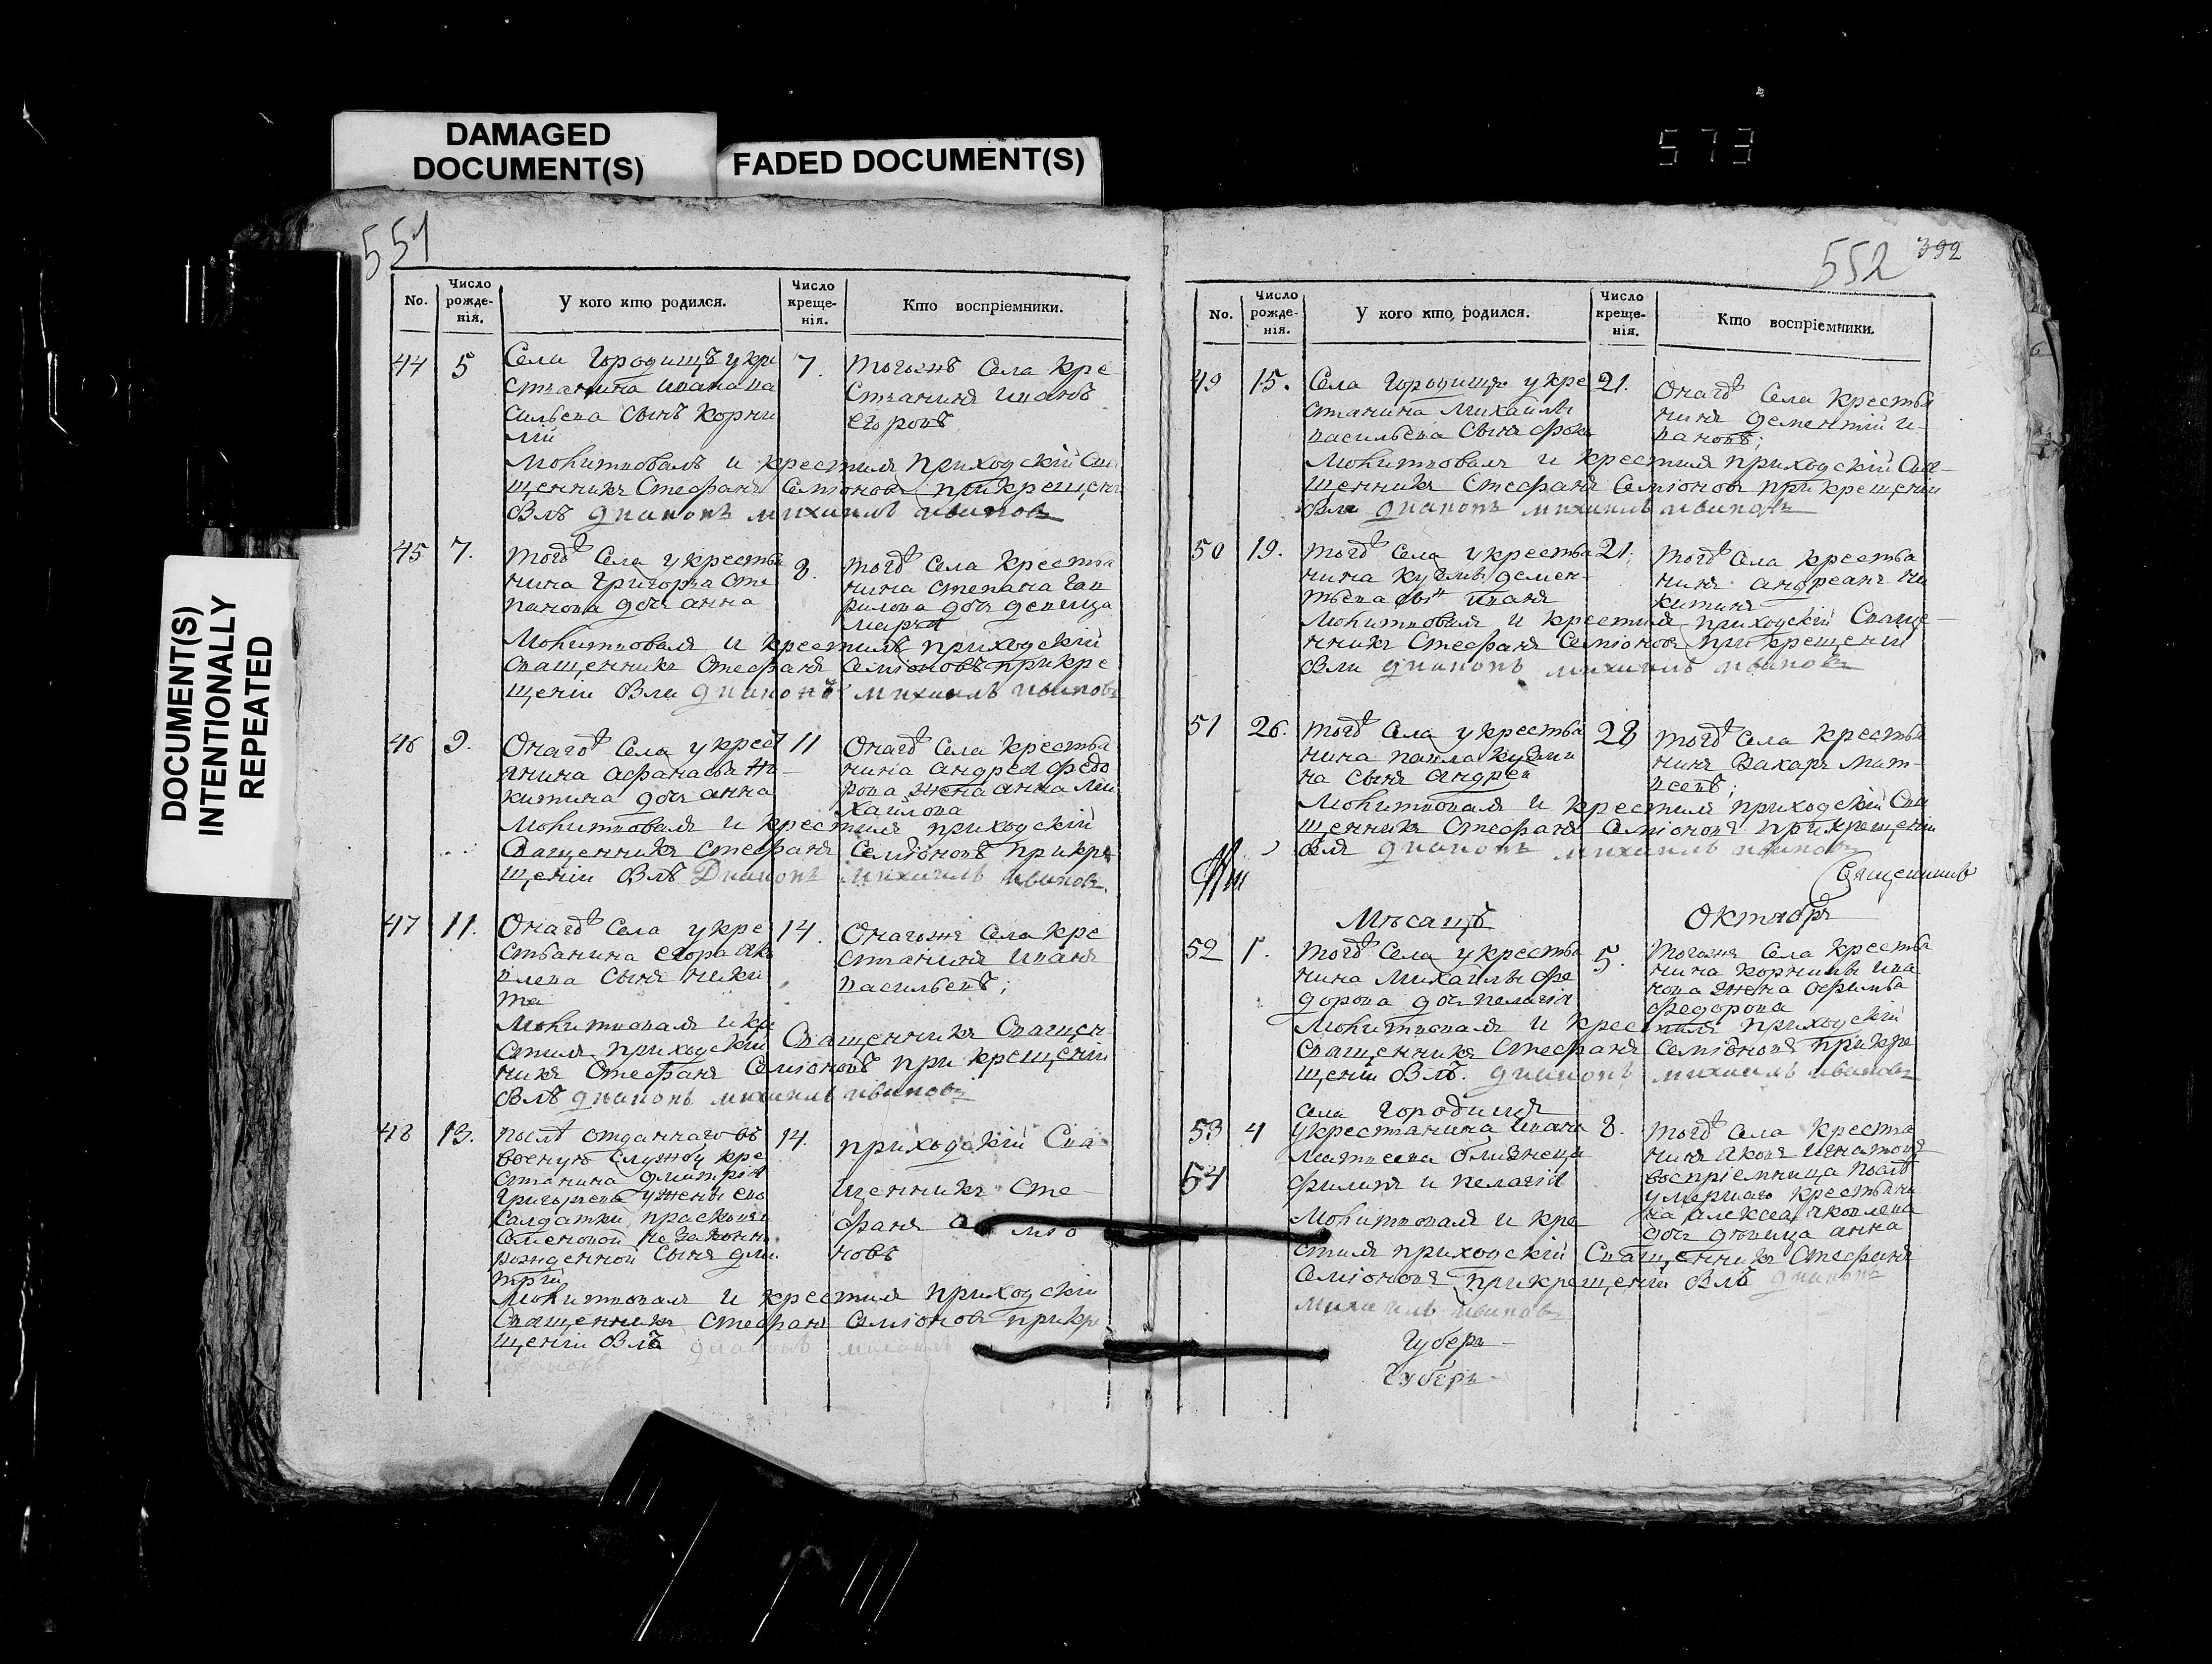 DAMAGED
DOCUMENT(S)
FADED DOCUMENT(S)
573
DOCUMENT(S)
INTENTIONALLY
REPEATED
551
No.
Число
рожде-
нія.
У кого кто родился.
Число
креще-
нія.
Кто воспріемники.
44 5 7.
Села Городищъ укре
стъанина ивана ва
сильева сынъ корни
лій
тогожъ Села кре
стъанинъ иванъ
егоровъ
Молитвовалъ и крестилъ приходскій Свя
щенникъ Стефанъ Семіоновъ прикрещені
былъ диаконъ михаилъ ивановъ
45 7. 8.
тогож Села укрестья
нина григорья сте
панова дочь анна
тогож Села крестья
нина степана гав
рилова дочь девица
марфа
Молитвовалъ и крестилъ приходскій
священникъ Стефанъ Семіоновъ прикре
щеніи былъ диаконъ михаилъ ивановъ
46 9. 11
Онагож Села укрест
янина афанасья ни-
китина дочь анна
Онагож Села крестья
нина андрея федо
рова жена анна ми
хайлова
Молитвовалъ и крестилъ приходскій
Священникъ стефанъ Семіоновъ прикре
щеніи былъ Диаконъ михаилъ ивановъ.
47 11. 14.
Онагож Села укре
стьанина егора яко
влева сынъ ники
та
Онагожъ Села кре
стъанинъ иванъ
васильевъ;
Молитвовалъ и кре
стилъ приходскій Священникъ Священ
никъ Стефанъ Семіоновъ прикрещеніи
былъ диаконъ михаилъ ивановъ
48 13. 14.
послѣ отданнаго въ
военую службу кре
стъанина дмитрія
григорьева ужены ево
солдатки прасковьи
Семеновой незаконно
рожденной сынъ дми
трій
приходскій Свя
щенникъ Сте-
фанъ Семіо
новъ
Молитвовалъ и крестилъ приходскій
Священникъ Стефанъ Семіоновъ прикре
щеніи былъ диаконъ михаилъ
ивановъ
552 392
No.
Число
рожде-
нія.
У кого кто родился.
Число
креще-
нія.
Кто воспріемники.
49 15. 21.
Села Городищъ укре
стъанина Михайлы
васильева сынъ фока
Онагож Села крестья
нинъ дементій и-
вановъ;
Молитвовалъ и крестилъ приходскій Свя-
щенникъ Стефанъ Семіоновъ прикрещеніи
былъ диаконъ михаилъ ивановъ
50 19. 21.
тогож Села укрестья
нина кузмы демен-
тьева сынъ иванъ
тогож Села крестья
нинъ андреанъ ни
китинъ
Молитвовалъ и крестилъ приходскій Свяще-
нникъ Стефанъ Семіоновъ прикрещеніи
былъ диаконъ михаилъ ивановъ
51 26. 28
тогож Села укрестья
нина павла кузми
на сынъ андрей
тогож Села крестья
нинъ Захаръ мат-
веевъ;
Молитвовалъ и крестилъ приходскій Свя
щенникъ Стефанъ Семіоновъ прикрещеніи
былъ диаконъ михаилъ ивановъ
Священникъ
Мѣсяцъ Октябрь
52 1. 5.
тогож Села укрестья
нина Михайлы фе
дорова дочь пелагія
тогожъ Села крестья
нина корнилы ива
нова жена офимья
федорова
Молитвовалъ и крестилъ приходскій
священникъ Стефанъ Семіоновъ прикре
щеніи былъ. диаконъ михаилъ ивановъ
53 4 8.
54
села городищъ
укрестъанина ивана
матвеева близнецы
филипъ и пелагія
тогож Села крестья
нинъ яковъ игнатовъ
воспріемница послѣ
умершаго крестьяни
на алексея яковлева
дочь девица анна
Молитвовалъ и кре
стилъ приходскій Священникъ Стефанъ
Семіоновъ прикрещеніи былъ диаконъ
михаилъ ивановъ
Губерн
Губерн